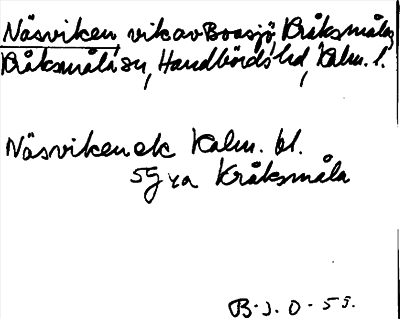 Näsviken, vik av Boasjö, Kråksmåla,
Kråksmåla sn, Handbörds hd, Kalm. l.
Näsviken ek Kalm. bl.
5G ya Kråksmåla
B-J. O - 55.